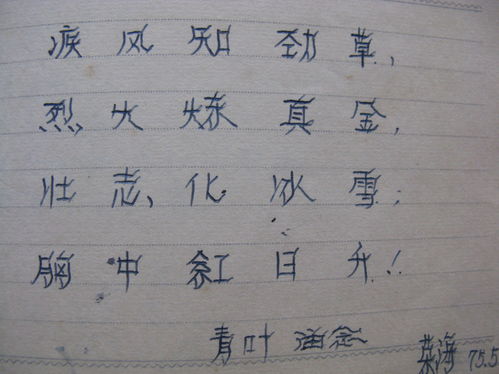 疾风知劲草,
烈火炼真金,
壮志、化冰雪;
胸中紅日升!!
青叶 留念
菜海 75.5